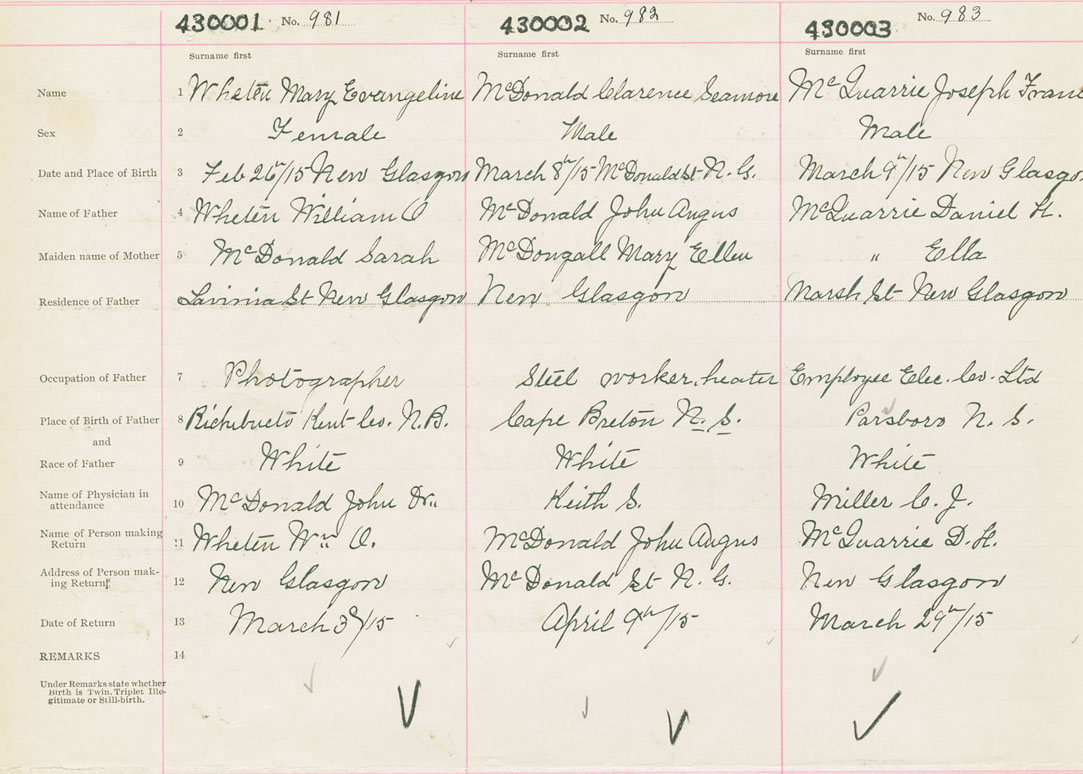 430001 No. 981 430002 No. 982 430003 No. 983
Surname first Surname first Surname first
Name 1 Wheten Mary Evangeline McDonald Clarence Seamore McQuarrie Joseph Fran
Sex 2 Female Male Male
Date and Place of Birth 3 Feb 26th/15 New Glasgow March 8th/15 McDonald St N. G. March 9th/15 New Glasgo
Name of Father 4 Wheten William O McDonald John Angus McQuarrie Daniel H.
Maiden name of Mother 5 McDonald Sarah McDongall Mary Ellen " Ella
Residence of Father Lavinia St New Glasgow New Glasgow Marsh St New Glasgow
Occupation of Father 7 Photographer Steel worker, heater Employee Elec. Co. Ltd
Place of Birth of Father 8 Richibucto Kent Co. N.B. Cape Breton N. S. Parsboro N. S.
and
Race of Father 9 White White White
Name of Physician in
attendance 10 McDonald John Wm Keith S. Miller C. J.
Name of Person making
Return 11 Wheten Wm O. McDonald John Angus McQuarrie D. H.
Address of Person mak-
ing Return 12 New Glasgow McDonald St N. G. New Glasgow
Date of Return 13 March 3d/15 April 9th/15 March 29th/15
REMARKS 14
Under Remarks state whether
Birth is Twin, Triplet Ille-
gitimate or Still-birth.